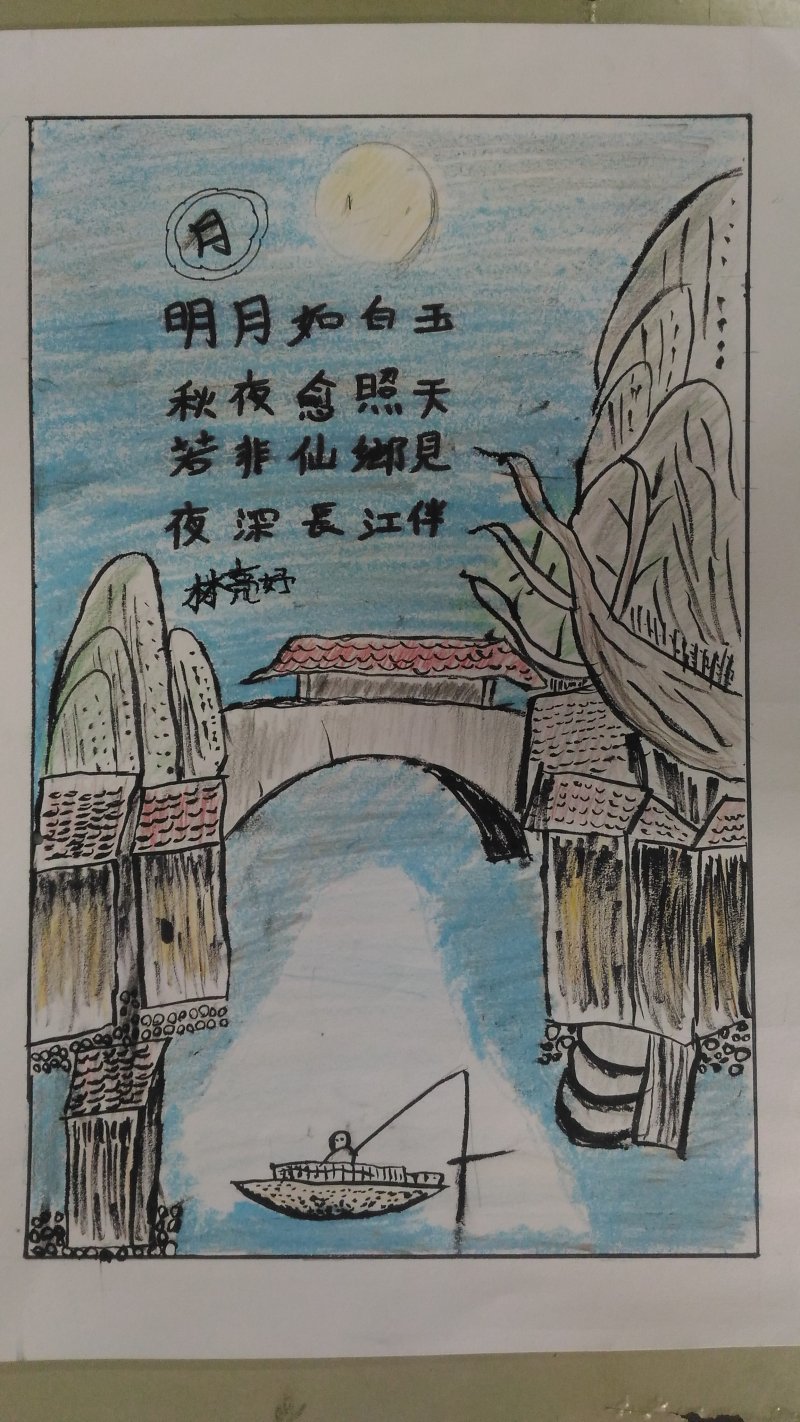 月
明月如白玉
秋夜愈照天
若非仙鄉見
夜深長江伴
林亮妤